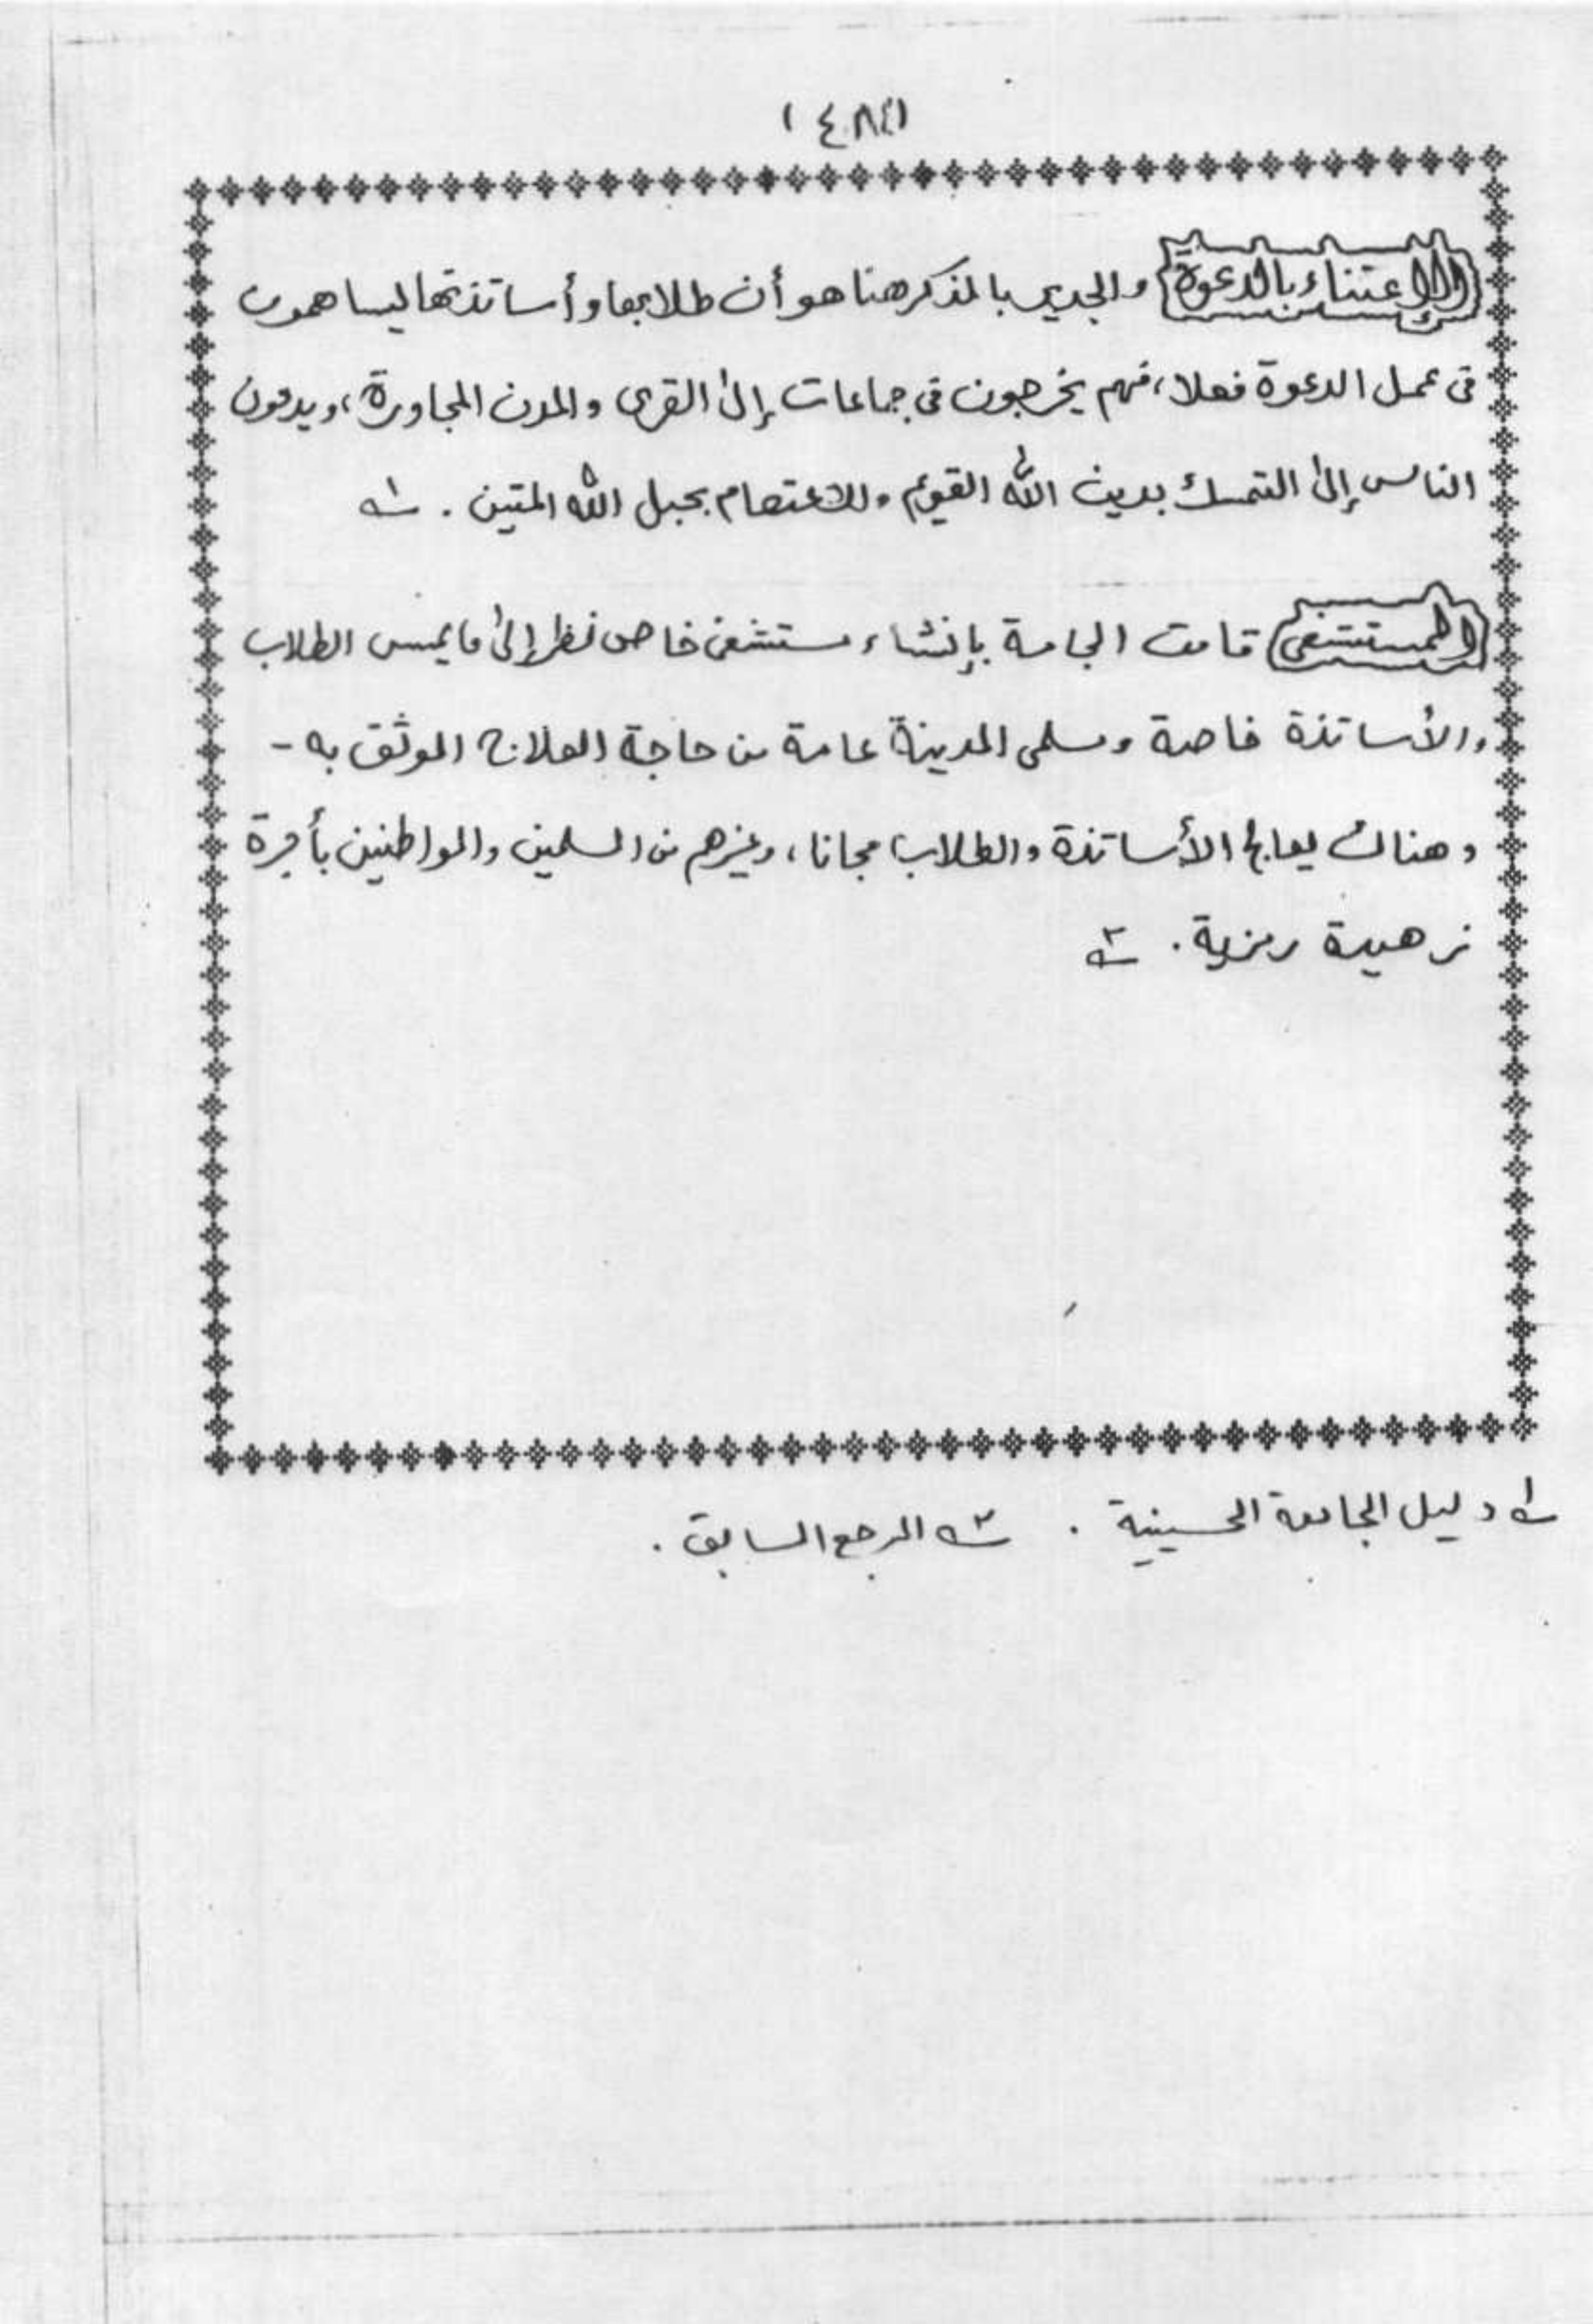 (٤٨٤)
الاعتناء بالدعوة والجدير بالذكر هنا هو أن طلابها وأساتذتها ليساهمون
فى عمل الدعوة فعلا، فهم يخرجون فى جماعات إلى القرى والمدن المجاورة، ويدعون
الناس إلى التمسك بدين الله القويم والاعتصام بحبل الله المتين . ١
المستشفى قامت الجامعة بإنشاء مستشفى خاص نظرا إلى ما يمس الطلاب
والأساتذة خاصة ومسلمى المدينة عامة من حاجة العلاج الموثق به -
وهناك يعالج الأساتذة والطلاب مجانا، وغيرهم من المسلمين والمواطنين بأجرة
زهيدة رمزية . ٢
١ دليل الجامعة الحسينية . ٢ المرجع السابق .